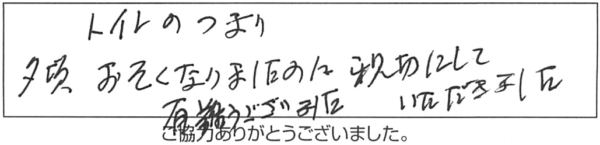 トイレのつまり
夕頃 おそくなりましたのに 親切にして
いただきました
有難うございました
ご協力ありがとうございました。